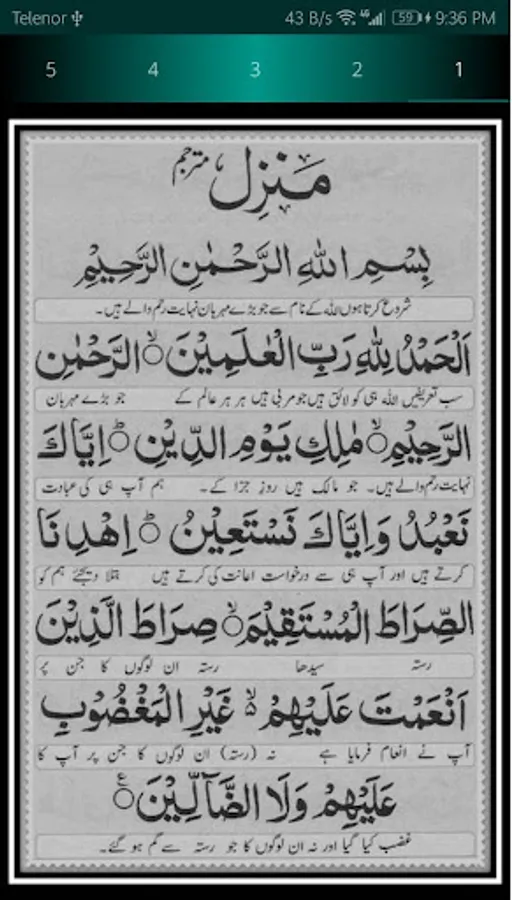 Telenor 43 B/s 4G 59 9:36 PM
5 4 3 2 1
مَنْزِل مترجم
بِسْمِ اللهِ الرَّحْمٰنِ الرَّحِيْمِ
شروع کرتا ہوں اللہ کے نام سے جو بڑے مہربان نہایت رحم والے ہیں۔
اَلْحَمْدُ لِلّٰهِ رَبِّ الْعٰلَمِيْنَ ۙ الرَّحْمٰنِ
سب تعریفیں اللہ ہی کو لائق ہیں جو مربی ہیں ہر ہر عالم کے جو بڑے مہربان
الرَّحِيْمِ ۙ مٰلِكِ يَوْمِ الدِّيْنِ ؕ اِيَّاكَ
نہایت رحم والے ہیں۔ جو مالک ہیں روزِ جزا کے۔ ہم آپ ہی کی عبادت
نَعْبُدُ وَاِيَّاكَ نَسْتَعِيْنُ ؕ اِهْدِنَا
کرتے ہیں اور آپ ہی سے درخواست اعانت کی کرتے ہیں بتلا دیجئے ہم کو
الصِّرَاطَ الْمُسْتَقِيْمَ ۙ صِرَاطَ الَّذِيْنَ
رستہ سیدھا رستہ ان لوگوں کا جن پر
اَنْعَمْتَ عَلَيْهِمْ ۙ۬ غَيْرِ الْمَغْضُوْبِ
آپ نے انعام فرمایا ہے نہ (رستہ) ان لوگوں کا جن پر آپ کا
عَلَيْهِمْ وَلَا الضَّآلِّيْنَ ۧ
غضب کیا گیا اور نہ ان لوگوں کا جو رستہ سے گم ہو گئے۔